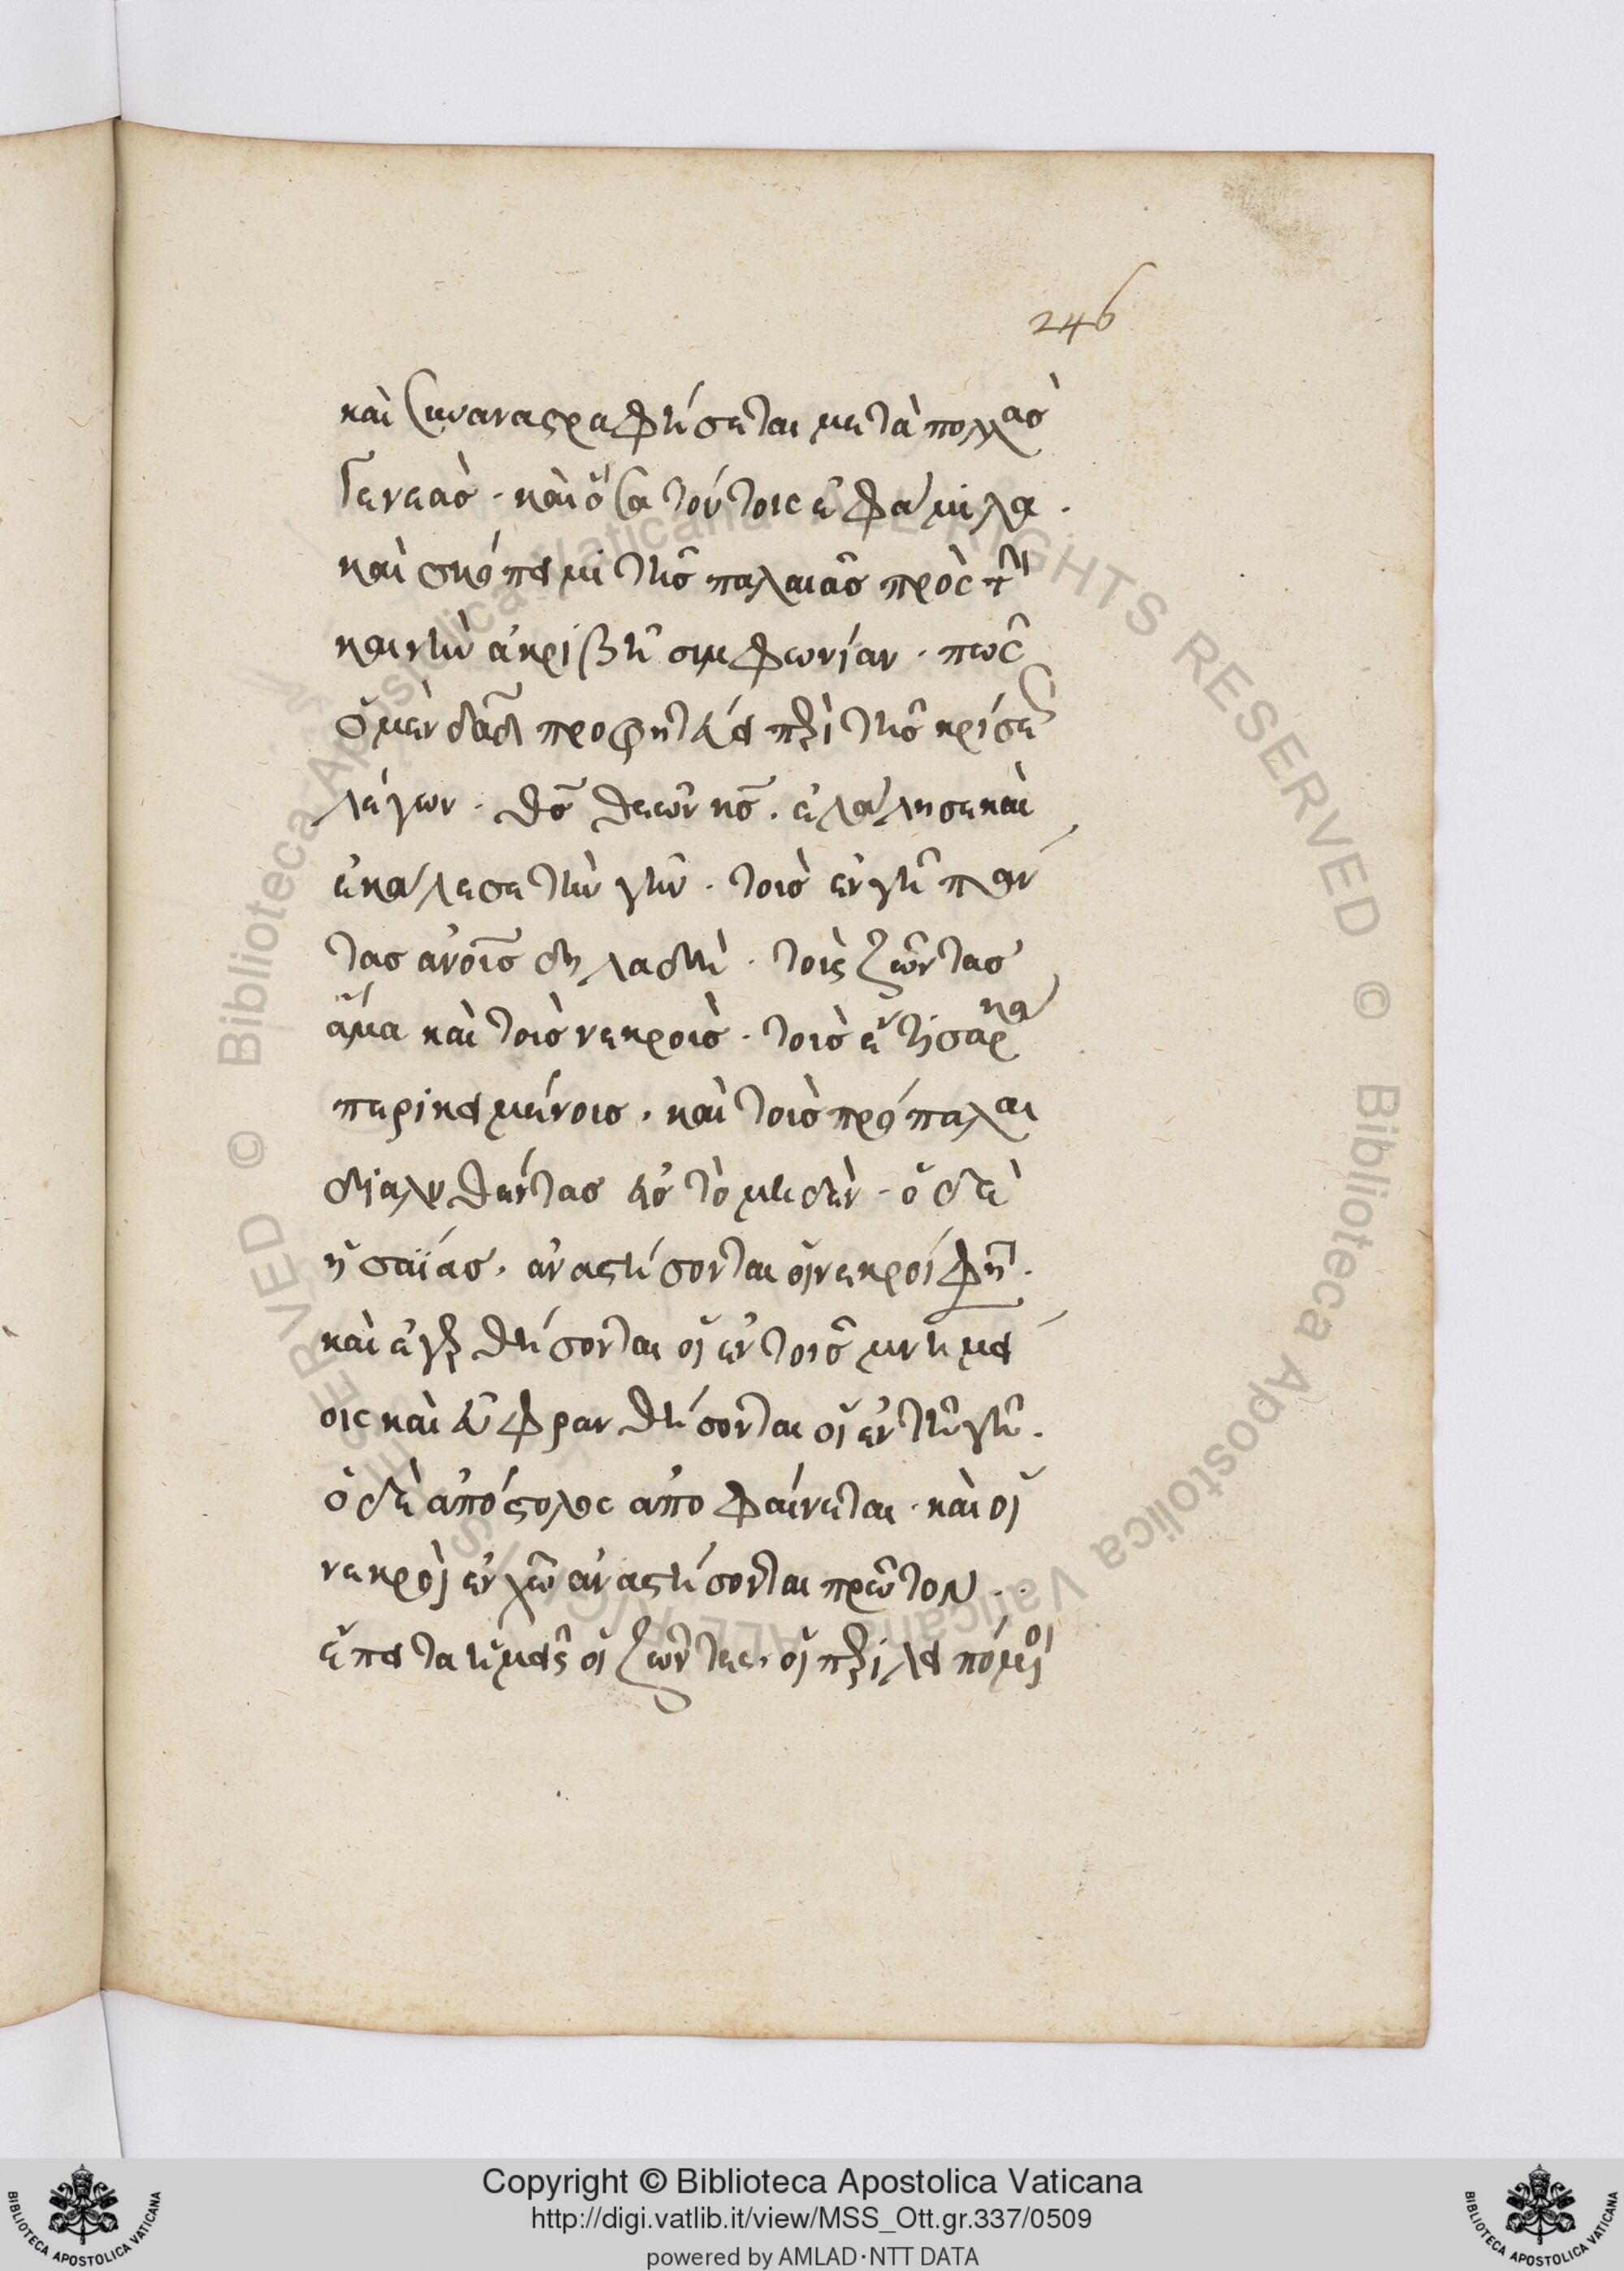 246
καὶ συναναστραφήσεται μετὰ πολλὰς
γενεάς. καὶ ὅσα τούτοις ἐφάμιλλα.
καὶ σκόπει μοι τῆς παλαιᾶς πρὸς τὴν
καινὴν ἀκριβῆ συμφωνίαν. πῶς
ὁ μὲν δα̅δ προφητεύει περὶ τῆς κρίσεως
λέγων. θς̅ θεῶν κς̅. ἐλάλησε καὶ
ἐκάλεσε τὴν γῆν. τοὺς ἐν γῇ πάν
τας ἀνους̅ δηλαδή. τοὺς ζῶντας
ἅμα καὶ τοὺς νεκρούς. τοὺς ἔτι σάρκα
περικειμένους. καὶ τοὺς πρόπαλαι
διαλυθέντας εἰς τὸ μηδέν. ὁ δὲ
ἡσαΐας. ἀναστήσονται οἱ νεκροί φησι.
καὶ ἐγερθήσονται οἱ ἐν τοῖς μνημεί
οις καὶ εὐφρανθήσονται οἱ ἐν τῇ γῇ.
ὁ δὲ ἀπόστολος ἀποφαίνεται. καὶ οἱ
νεκροὶ ἐν χω̅ ἀναστήσονται πρῶτον.
ἔπειτα ἡμεῖς οἱ ζῶντες. οἱ περιλειπόμενοι
Copyright © Biblioteca Apostolica Vaticana
http://digi.vatlib.it/view/MSS_Ott.gr.337/0509
powered by AMLAD·NTT DATA
BIBLIOTECA APOSTOLICA VATICANA
BIBLIOTECA APOSTOLICA VATICANA
© Biblioteca Apostolica Vaticana ALL RIGHTS RESERVED © Biblioteca Apostolica Vaticana ALL RIGHTS RESERVED